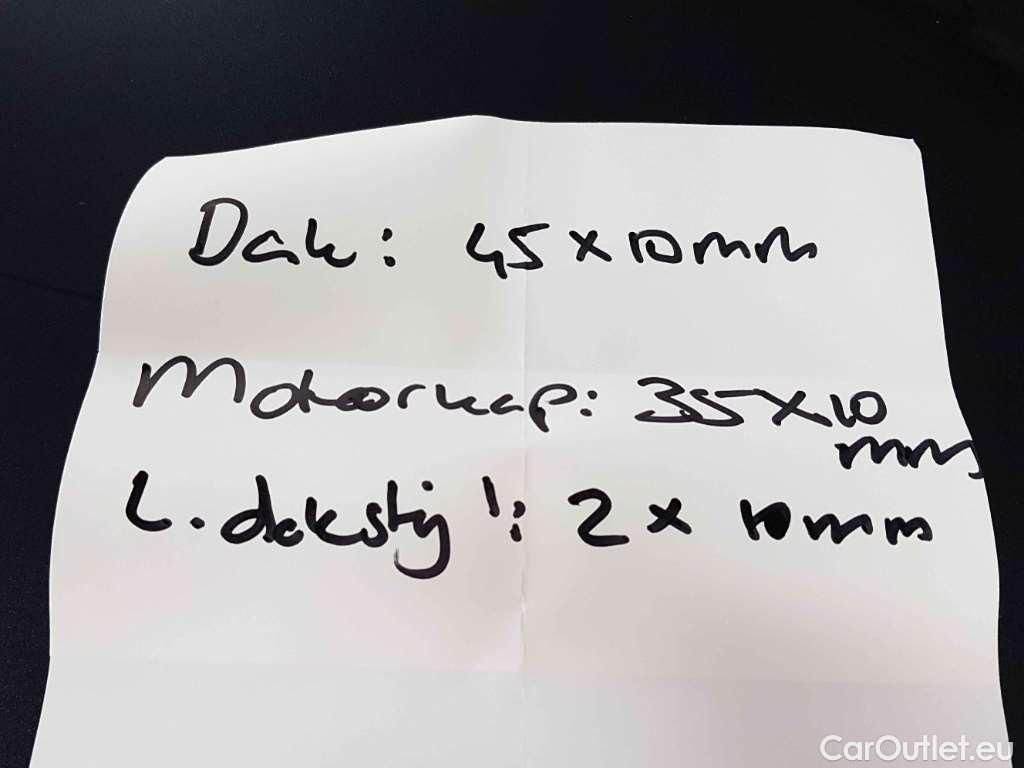 Dak: 45 x 10 mm
Motorkap: 35 x 10
mm
L. dakstijl: 2 x 10 mm
CarOutlet.eu